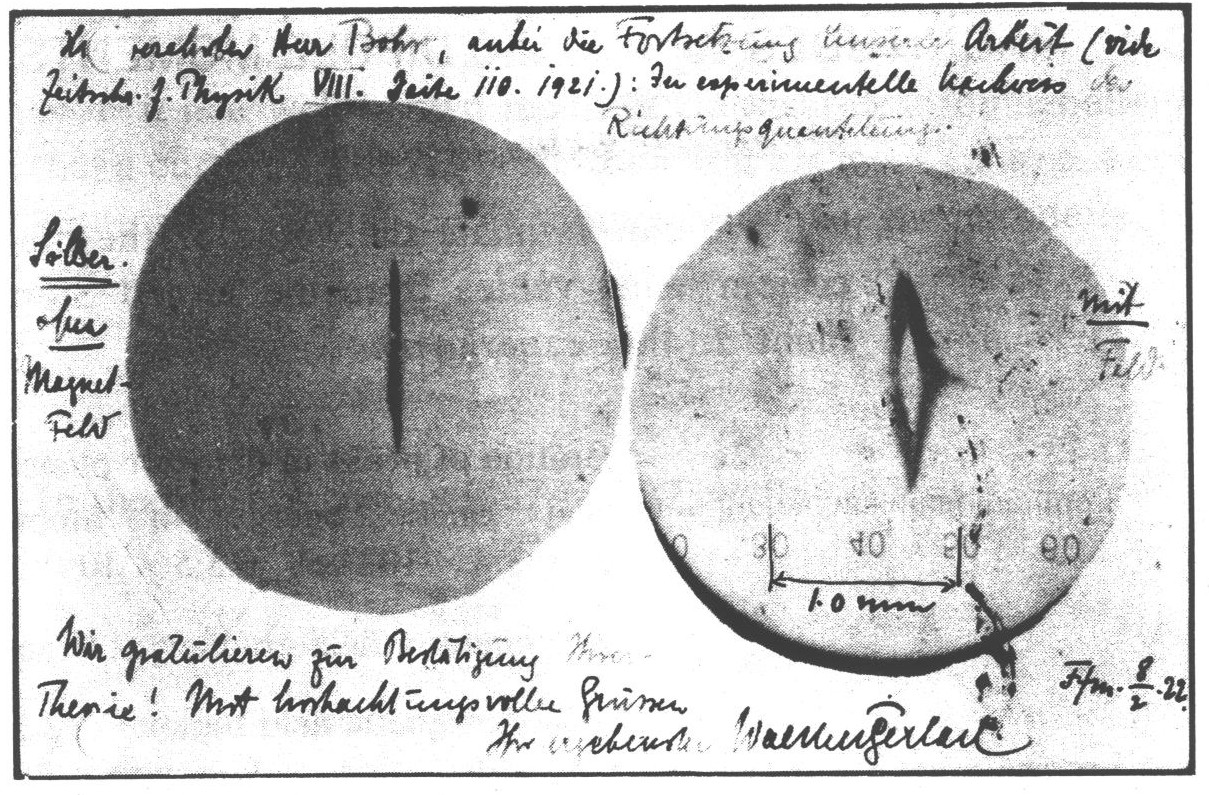 verehrter Herr Bohr, anbei die Fortsetzung unserer Arbeit (vide
Zeitschr. f. Physik VIII. Seite 110. 1921.): Der experimentelle Nachweis der
Richtungsquantelung.
Silber.
ohne
Magnet-
Feld
mit
Feld
30 40 50 60
1.0 mm
Wir gratulieren zur Bestätigung Ihrer
Theorie! Mit hochachtungsvollen Grüssen
Ihr ergebenster Walther Gerlach
Ffm. 8/2. 22.